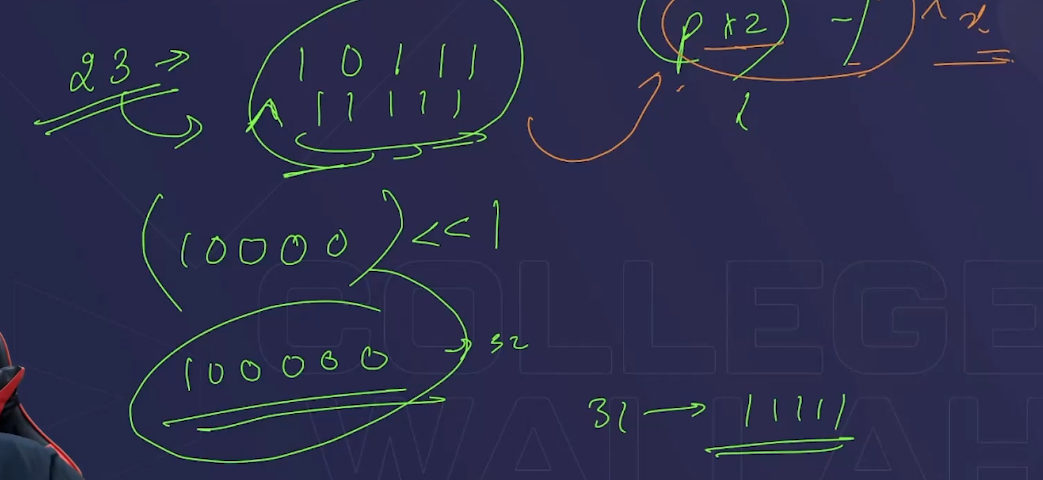 (p*2) - 1 ^ x
23 → 10111
^ 11111
(10000) << 1
100000 → 32
31 → 11111
COLLEGE
WALLAH